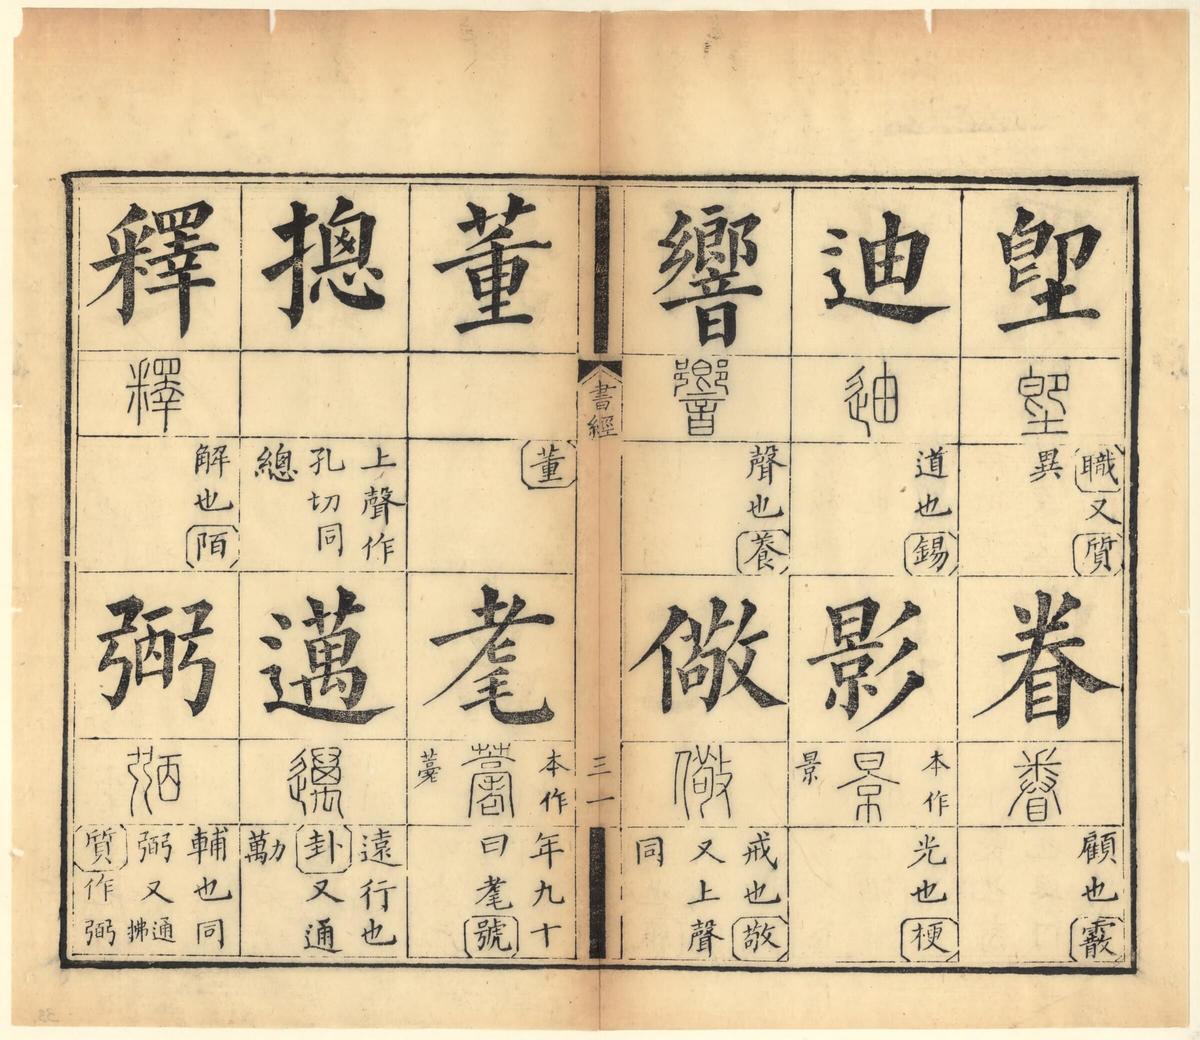 堲
堲
職又質
異
眷
眷
顧也霰
迪
迪
道也錫
影
本作
景
景
光也梗
響
響
聲也養
儆
儆
戒也敬
又上聲
同
書經
三一
董
董
耄
本作
薹
年九十
曰耄號
揔
上聲作
孔切同
總
邁
邁
遠行也
卦又通
勱
釋
釋
解也陌
弼
弼
輔也同
弻又通拂
質作弻